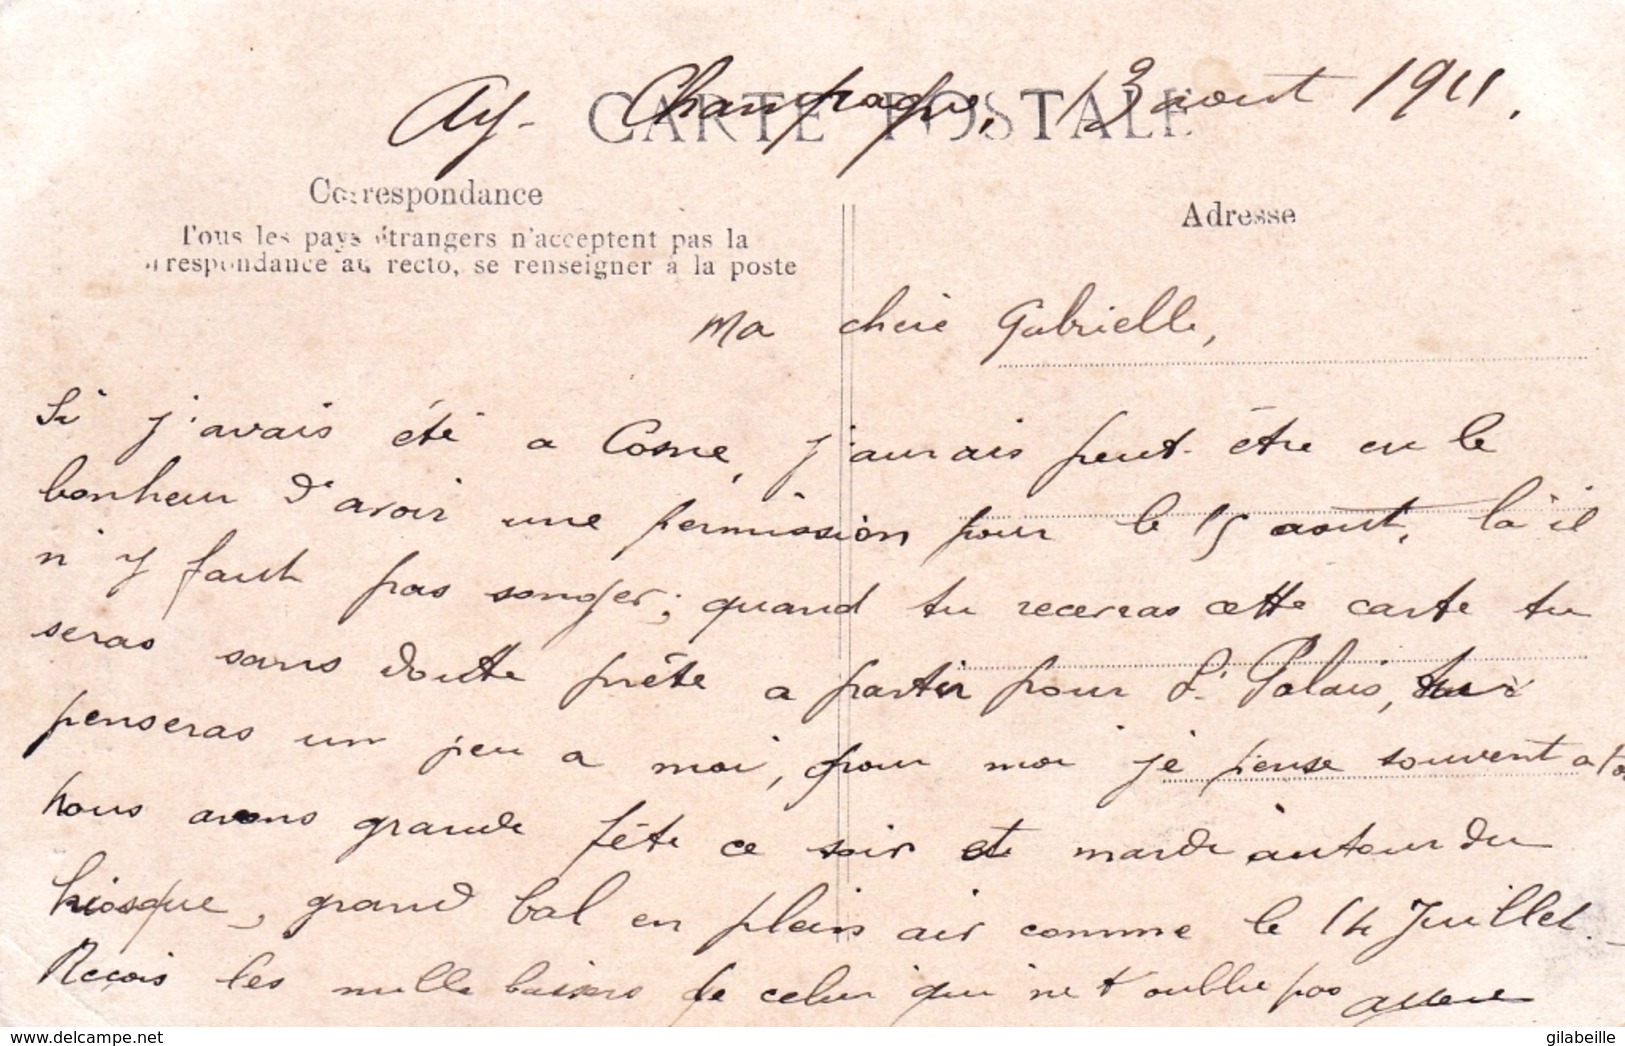 Ay- Champagne, 13 aout 1911.
CARTE POSTALE
Correspondance
Adresse
Tous les pays étrangers n'acceptent pas la
correspondance au recto, se renseigner à la poste
Ma chere Gabrielle,
Si j'avais été a Cosne, j'aurais peut-être eu le
bonheur d'avoir une permission pour le 15 aout, là il
n'y faut pas songer; quand tu recevras cette carte tu
seras sans doute prête a partir pour St Palais, tu
penseras un peu a moi, pour moi je pense souvent a toi
nous avons grande fête ce soir et mardi autour du
kiosque, grand bal en plein air comme le 14 Juillet.
Recois les mille baisers de celui qui ne t'oublie pas
www.delcampe.net
gilabeille